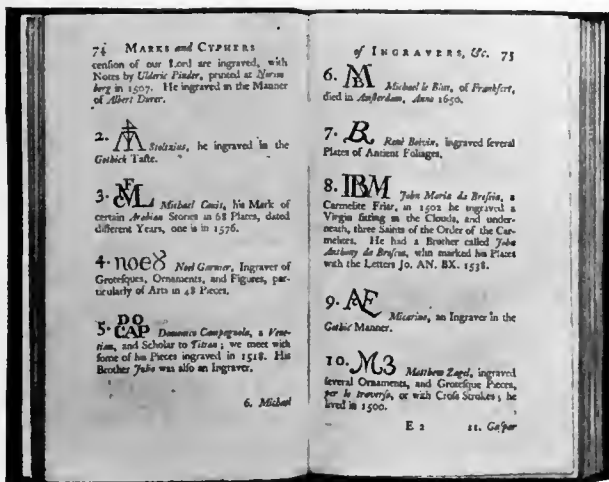 74 MARKS and CYPHERS
cenſion of our Lord are ingraved, with
Notes by Ulderic Pinder, printed at Norim
berg in 1507. He ingraved in the Manner
of Albert Durer.
2. Stoltzius, he ingraved in the
Gothick Taſte.
3. Michael Coxis, his Mark of
certain Arabian Stories in 68 Plates, dated
different Years, one is in 1576.
4. noe8 Noel Garnier, Ingraver of
Groteſques, Ornaments, and Figures, par-
ticularly of Arts in 48 Pieces.
5. DO
CAP Domenico Campagnola, a Vene-
tian, and Scholar to Titian; we meet with
ſome of his Pieces ingraved in 1518. His
Brother Julio was alſo an Ingraver.
6. Michael
of INGRAVERS, &c. 75
6. MB Michael le Blon, of Frankfort,
died in Amſterdam, Anno 1650.
7. R René Boivin, ingraved ſeveral
Plates of Antient Foliages.
8. IBM John Maria da Breſcia, a
Carmelite Friar, in 1502 he ingraved a
Virgin ſitting in the Clouds, and under-
neath, three Saints of the Order of the Car-
melites. He had a Brother called John
Anthony da Breſcia, who marked his Plates
with the Letters Jo. AN. BX. 1538.
9. Æ Micarino, an Ingraver in the
Gothic Manner.
10. M3 Matthew Zagel, ingraved
ſeveral Ornaments, and Groteſque Pieces,
per lo traverſo, or with Croſs Strokes; he
lived in 1500.
E 2 11. Gaſpar